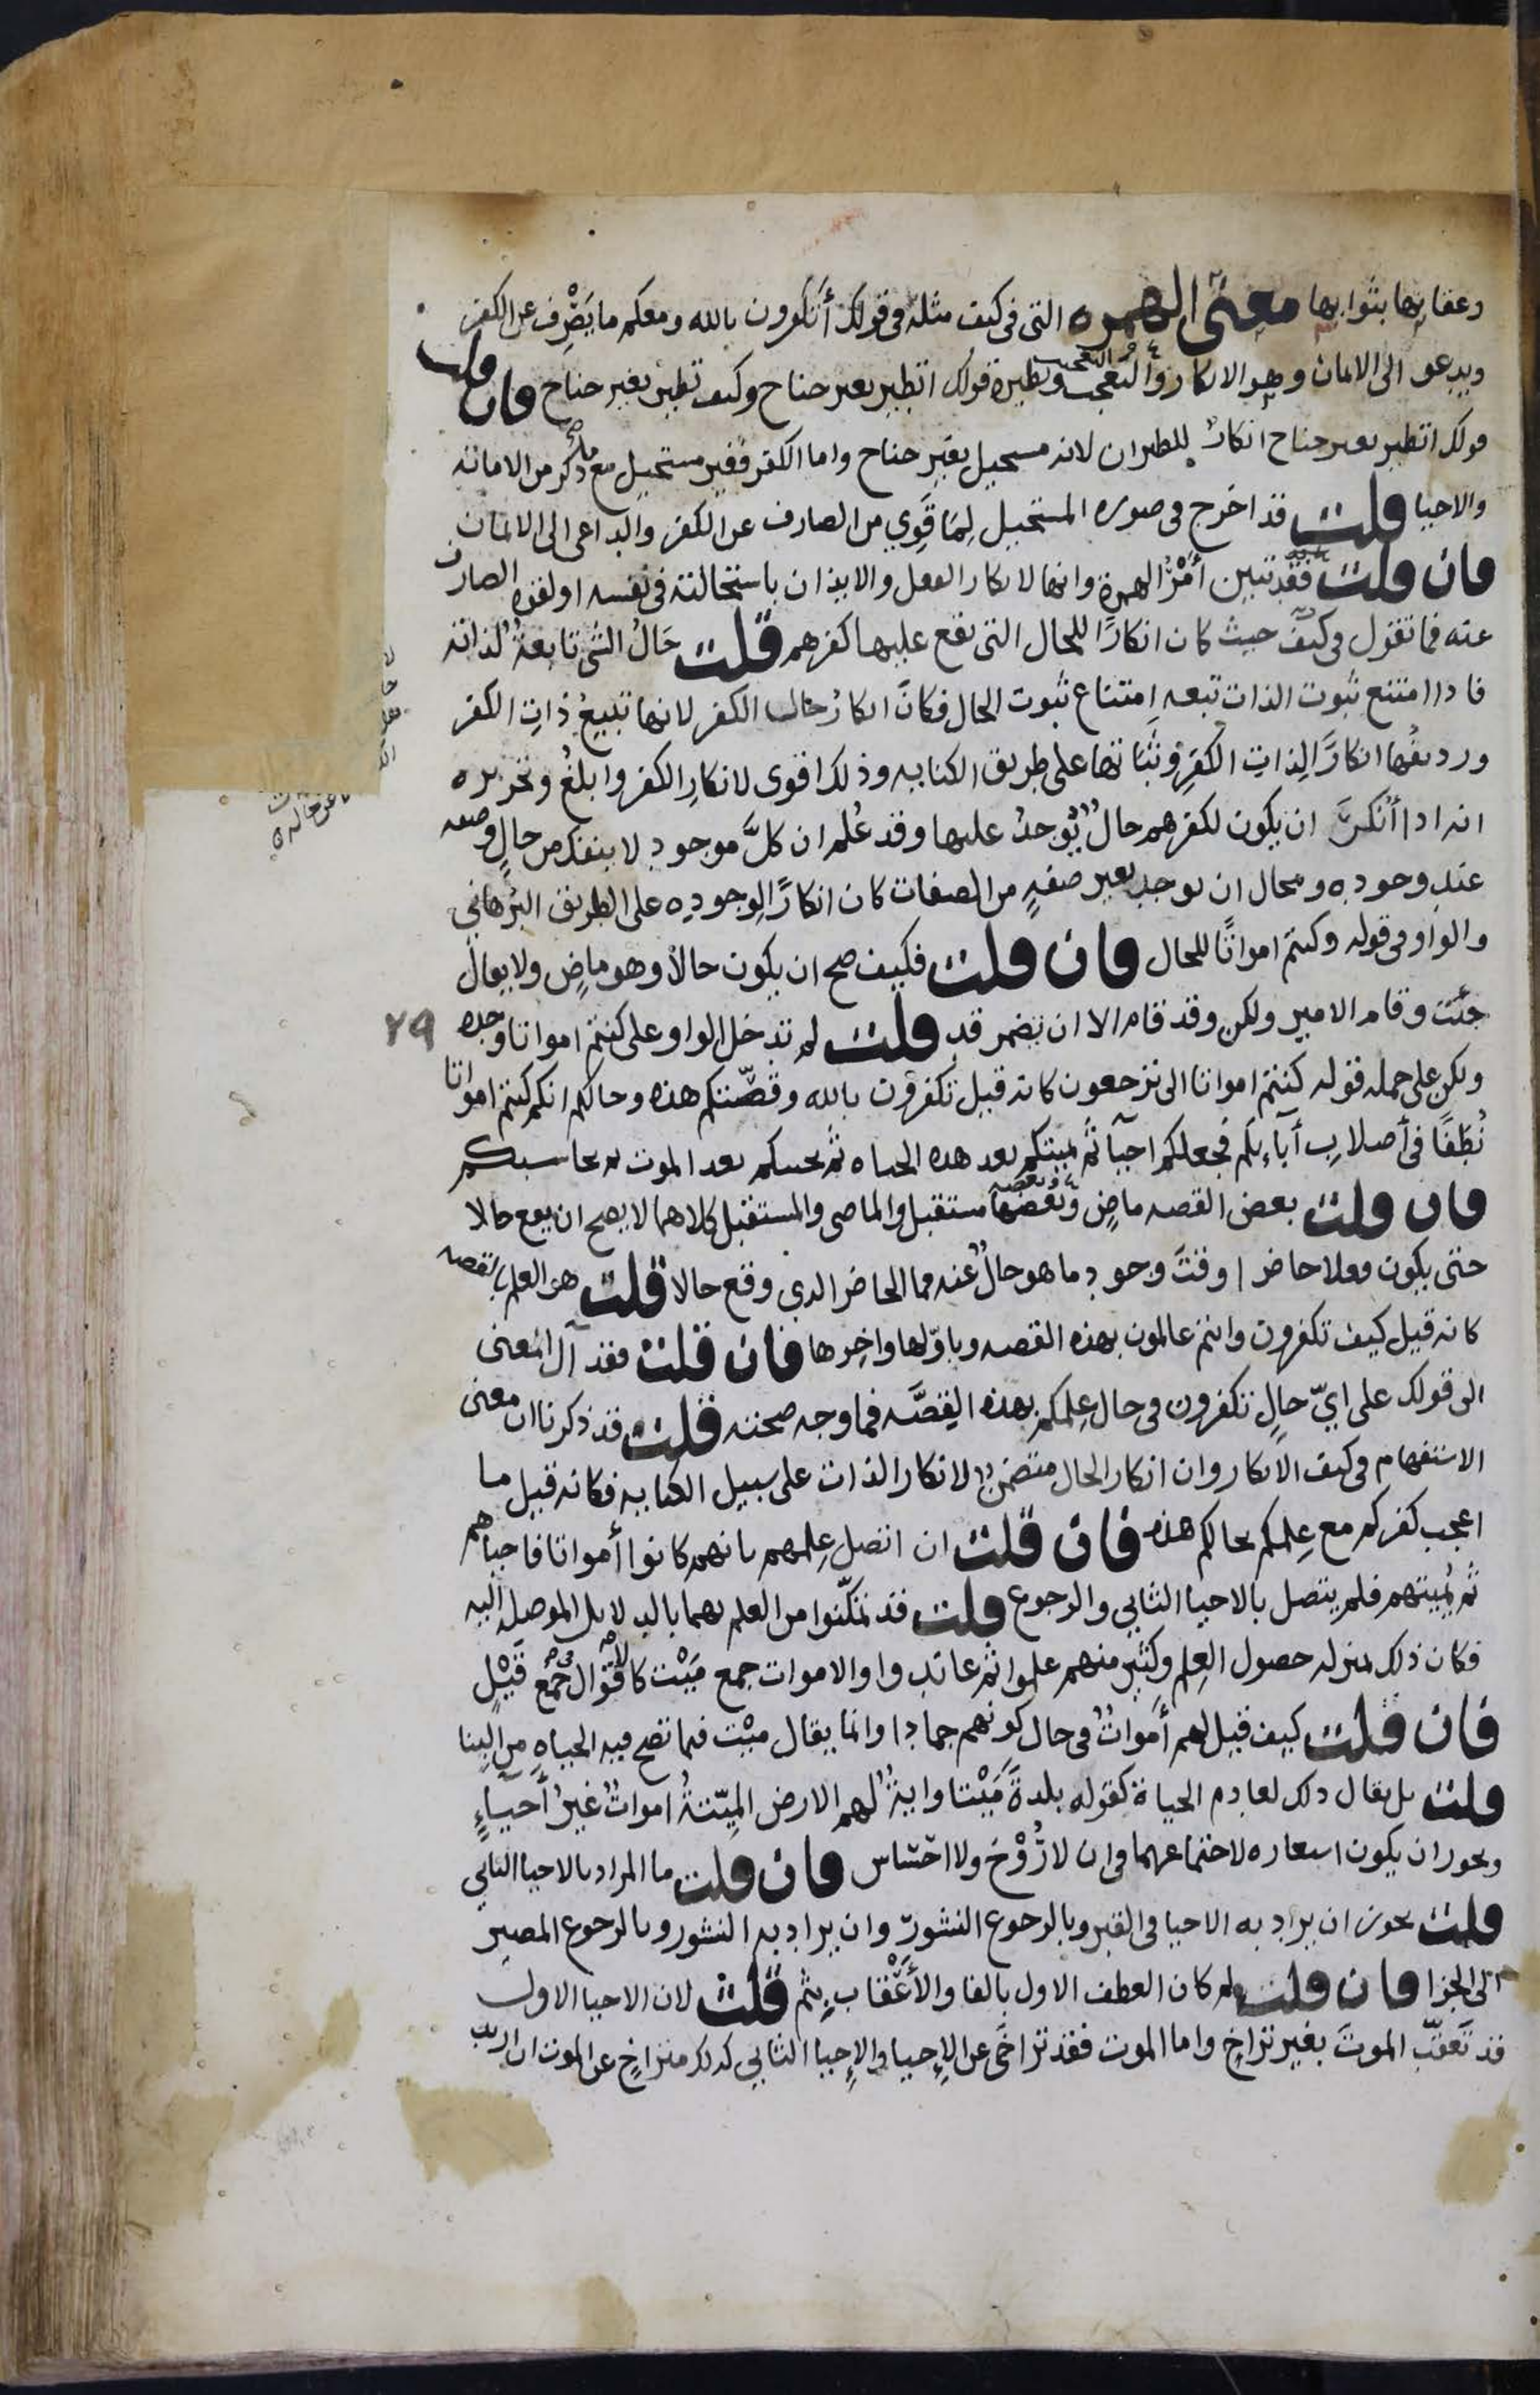 وعقابها بثوابها معنى الهمزه التى فى كيف مثله فى قولك أتكفرون بالله ومعكم ما يَصْرِف عن الكفر
ويدعو الى الايمان وهو الانكار والتعجب ونظيره قولك اتطير بغير جناح وكيف تطير بغير جناح فان قلت
قولك اتطير بغير جناح انكارٌ للطيران لانه مستحيل بغير جناح واما الكفر فغير مستحيل مع ما ذكر من الاماته
والاحيا قلت قد اخرج فى صوره المستحيل لِمَا قَوِي من الصارف عن الكفر والداعى الى الايمان
فان قلت فقد تبين أمْرُ الهمزة وانها لانكار الفعل والايذان باستحالته فى نفسه او لقوه الصارف
عنه فما تقول فى كيف حيث كان انكارًا للحال التى يقع عليها كفرهم قلت حَالُ الشى تابعةٌ لذاته
فاذا امتنع ثبوت الذات تبعه امتناع ثبوت الحال فكانَ انكارُ حال الكفر لانها تبيعُ ذاتِ الكفر
ورديفُها انكارًا لِذاتِ الكفرِ وثَبَاتها على طريق الكنايه وذلك اقوى لانكارِ الكفر وابلغُ وتحريره
انه اذا أُنكرَ ان يكون لكفرهم حالٌ يُوجدُ عليها وقد عُلم ان كلَّ موجود لا ينفك من حالٍ وصفه
عند وجوده ومحال ان يوجد بغير صفهٍ من الصفات كان انكارًا لِوجودِه على الطريق البُرهانى
والواو فى قوله وكنتم امواتًا للحال فان قلت فكيف صح ان يكون حالا وهو ماضٍ ولا يقال
جئت وقام الامير ولكن وقد قام الا ان يضمر قد قلت لم تدخل الواو على كنتم امواتا وحده
ولكن على جمله قوله كنتم امواتا الى ترجعون كانه قيل تكفرون بالله وقصّتكم هذه وحالكم انكم كنتم امواتا
نُطَفًا فى أصلابِ آباءِ بكم فجعلكم احيآ ثم يميتكم بعد هذه الحياه ثم يحييكم بعد الموت ثم يحاسبكم
فان قلت بعض القصه ماضٍ وبعضها مستقبل والماضى والمستقبل كلاهما لا يصح ان يقع حالا
حتى يكون فعلا حاضرا وقتَ وجود ما هو حالٌ عنه فما الحاضر الذى وقع حالا قلت هو العلم بالقصه
كانه قيل كيف تكفرون وانتم عالمون بهذه القصه وباوّلها واخِرها فان قلت فقد آل المعنى
الى قولك على ايّ حالٍ تكفرون فى حال عِلمكم بهذه القِصَّه فما وجه صحته قلت قد ذكرنا ان معنى
الاستفهام فى كيف الانكار وان انكار الحال متضمنٌ لانكار الذات على سبيل الكنايه فكانه قيل ما
اعجب كفركم مع عِلمكم بحالكم هذه فان قلت ان اتصل عِلمهم بانهم كانوا أمواتا فاحياهم
ثم يُميتهم فلم يتصل بالاحيا الثانى والرجوع قلت قد تمكّنوا من العلم بهما بالدلايل الموصله اليه
فكان ذلك بمنزله حصول العِلم وكثير منهم علموا ثم عاندوا والاموات جمع مَيْت كالاقوال فى جمع قَيْلٍ
فان قلت كيف قيل لهم أمواتٌ فى حال كونهم جمادا وانما يقال ميْت فيما تصح فيه الحياهِ من البِنا
قلت بل يقال ذلك لعادم الحياة كقوله بلدةً مَيْتا واية لهم الارض الميتةُ امواتٌ غيرُ أحياءٍ
ويجوز ان يكون استعاره لاجتماعهما فى ان لا رُوْحَ ولا احْسَاس فان قلت ما المراد بالاحيا الثانى
قلت يجوز ان يراد به الاحيا فى القبر وبالرجوع النشور وان يراد به النشور وبالرجوع المصير
الى الجزا فان قلت لم كان العطف الاول بالفا والأعْقاب بثم قلت لان الاحيا الاول
قد تَعَقّبَ الموتَ بغير تراخٍ واما الموت فقد تراخَى عن الإحيا والإحيا الثانى كذلك متراخٍ عن الموت ان اريد
٢٩